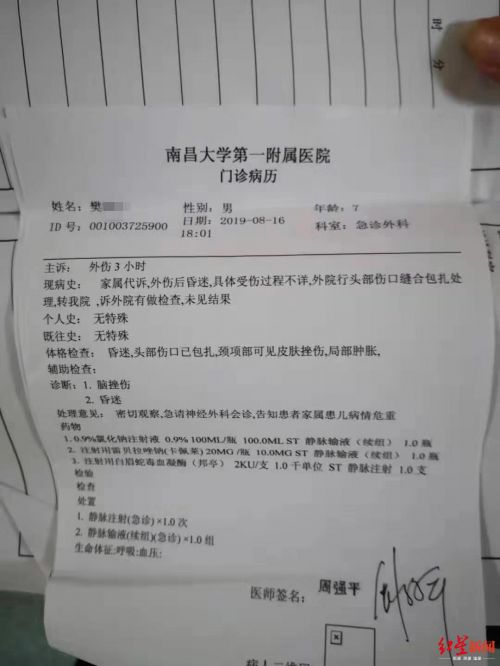 时 分
南昌大学第一附属医院
门诊病历
姓名: 樊 性别: 男 年龄: 7
ID 号: 001003725900 日期: 2019-08-16 18:01 科室: 急诊外科
主诉: 外伤 3 小时
现病史: 家属代诉,外伤后昏迷,具体受伤过程不详,外院行头部伤口缝合包扎处
理,转我院 ,诉外院有做检查,未见结果
个人史: 无特殊
既往史: 无特殊
体格检查: 昏迷,头部伤口已包扎,颈项部可见皮肤挫伤,局部肿胀,
辅助检查:
诊断: 1. 脑挫伤
2. 昏迷
处理意见: 密切观察,急请神经外科会诊,告知患者家属患儿病情危重
药物
1. 0.9%氯化钠注射液 0.9% 100ML/瓶 100.0ML ST 静脉输液(续组) 1.0 瓶
2. 注射用雷贝拉唑钠(卡佩莱) 20MG /瓶 10.0MG ST 静脉输液(续组) 1.0 瓶
3. 注射用白眉蛇毒血凝酶(邦亭) 2KU/支 1.0 千单位 ST 静脉注射 1.0 支
检验
检查
处置
1. 静脉注射(急诊) ×1.0 次
2. 静脉输液(续组)(急诊) ×1.0 组
生命体征:呼吸:血压:
医师签名: 周强平
病人二维码
红星新闻